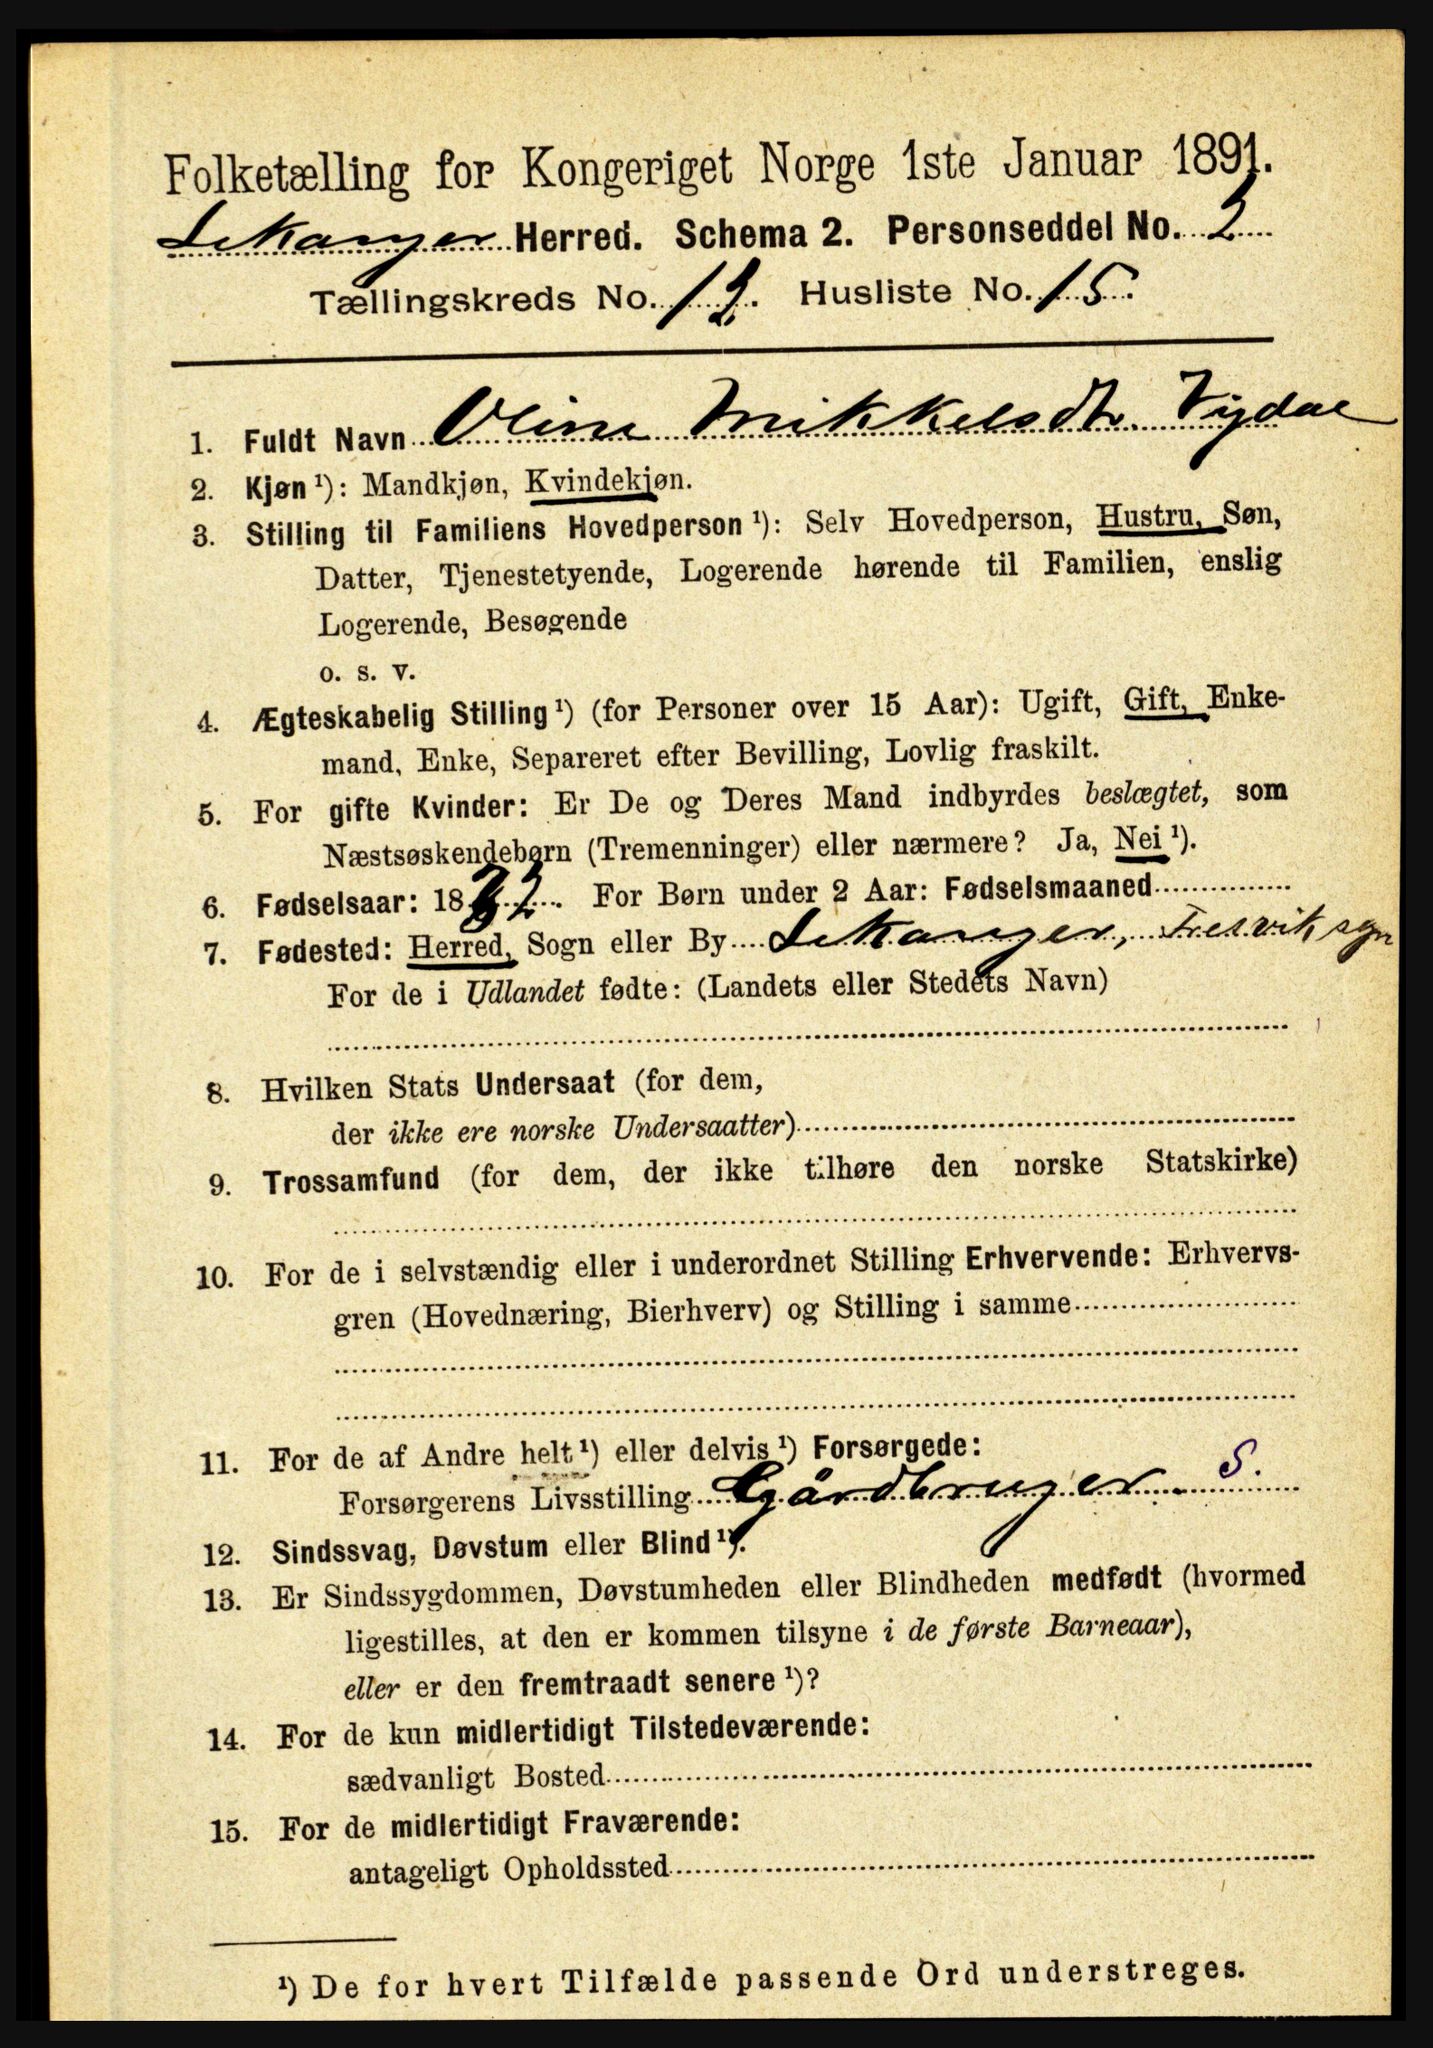 Folketælling for Kongeriget Norge 1ste Januar 1891.
Lekanger Herred. Schema 2. Personseddel No. 2
Tællingskreds No. 12. Husliste No. 15.
1. Fuldt Navn Oline Mikkelsdtr. Vigdal
2. Kjøn ¹): Mandkjøn, Kvindekjøn.
3. Stilling til Familiens Hovedperson ¹): Selv Hovedperson, Hustru, Søn,
Datter, Tjenestetyende, Logerende hørende til Familien, enslig
Logerende, Besøgende
o. s. v.
4. Ægteskabelig Stilling ¹) (for Personer over 15 Aar): Ugift, Gift, Enke-
mand, Enke, Separeret efter Bevilling, Lovlig fraskilt.
5. For gifte Kvinder: Er De og Deres Mand indbyrdes beslægtet, som
Næstsøskendebørn (Tremenninger) eller nærmere? Ja, Nei ¹).
6. Fødselsaar: 18 . For Børn under 2 Aar: Fødselsmaaned
7. Fødested: Herred, Sogn eller By Lekanger, Fresvik sgn
For de i Udlandet fødte: (Landets eller Stedets Navn)
8. Hvilken Stats Undersaat (for dem,
der ikke ere norske Undersaatter)
9. Trossamfund (for dem, der ikke tilhøre den norske Statskirke)
10. For de i selvstændig eller i underordnet Stilling Erhvervende: Erhvervs-
gren (Hovednæring, Bierhverv) og Stilling i samme
11. For de af Andre helt ¹) eller delvis ¹) Forsørgede:
Forsørgerens Livsstilling Gårdbruger. S.
12. Sindssvag, Døvstum eller Blind ¹).
13. Er Sindssygdommen, Døvstumheden eller Blindheden medfødt (hvormed
ligestilles, at den er kommen tilsyne i de første Barneaar),
eller er den fremtraadt senere ¹)?
14. For de kun midlertidigt Tilstedeværende:
sædvanligt Bosted
15. For de midlertidigt Fraværende:
antageligt Opholdssted
¹) De for hvert Tilfælde passende Ord understreges.